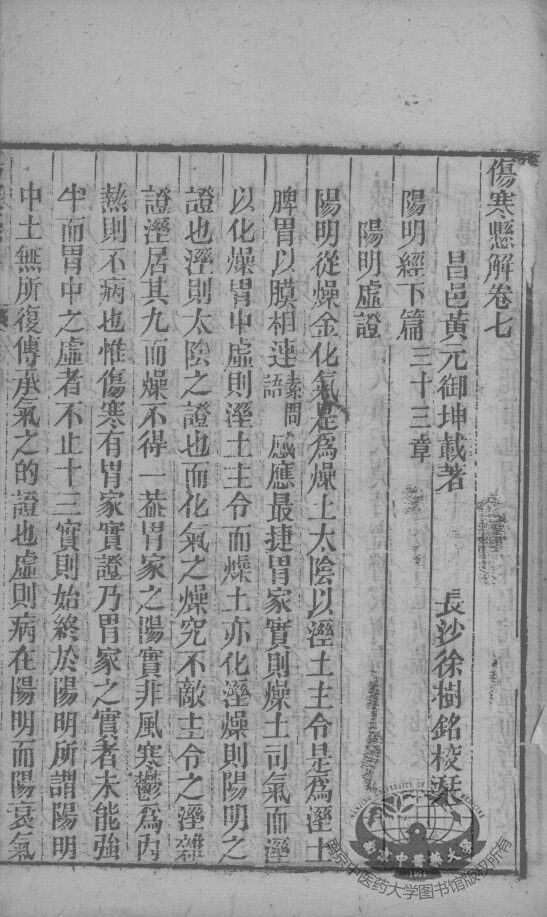 傷寒懸解卷七
昌邑黃元御坤載著 長沙徐樹銘校栞
陽明經下篇三十三章
陽明虛證
陽明從燥金化氣是爲燥土太陰以溼土主令是爲溼土
脾胃以膜相連素問語感應最捷胃家實則燥土司氣而溼
以化燥胃中虛則溼土主令而燥土亦化溼燥則陽明之
證也溼則太陰之證也而化氣之燥究不敵主令之溼雜
證溼居其九而燥不得一葢胃家之陽實非風寒鬱爲內
熱則不病也惟傷寒有胃家實證乃胃家之實者未能強
半而胃中之虛者不止十三實則始終於陽明所謂陽明
中土無所復傳承氣之的證也虛則病在陽明而陽衰氣
南京中医药大学图书馆版权所有